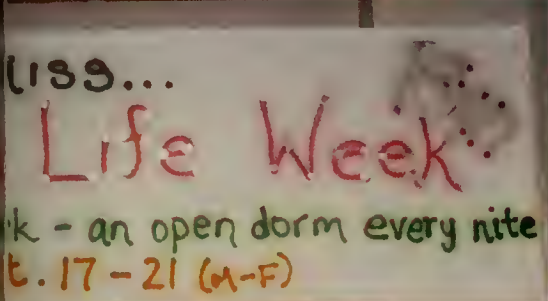 iss...
Life Week
k - an open dorm every nite
t. 17 - 21 (M-F)